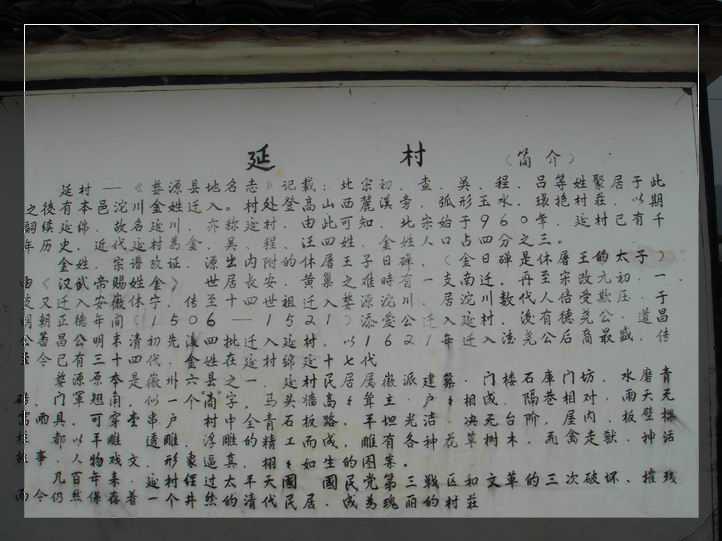 延 村 （简介）
延村 — 《婺源县地名志》记载：北宋初，查、吴、程、吕等姓聚居于此
之後有本邑沱川金姓迁入。村处登高山西麓溪旁，弧形玉水，環抱村庄，以期
嗣续延绵，故名延川，亦称延村，由此可知，北宋始于960年，延村已有千
年历史，近代延村为金、吴、程、汪四姓，金姓人口占四分之三。
金姓，宗谱攷证，源出内附的休屠王子日磾，（金日磾是休屠王的太子）
由《汉武帝赐姓金》 世居長安，黄巢之难時有一支南迁，再至宗改元初，一
支又迁入安徽休宁，传至十四世祖迁入婺源沱川，居沱川数代人倍受欺压，于
明朝正德年间（1506—1521）添爱公迁入延村，後有德尧公，道昌
公著昌公明末清初先後四批迁入延村，以1621年迁入德尧公后裔最盛，传
至今已有三十四代，金姓在延村绵延十七代
婺源原本是徽州六县之一，延村民居属徽派建築，门楼石库门坊，水磨青
砖，门罩翘南，似一个商字，马头墙高耸主，户户相成，隔巷相对，雨天无
需雨具，可穿堂串户 村中全青石板路，平坦光洁，决无台阶，屋内，板壁樑
柱 都以平雕 透雕，浮雕的精工而成，雕有各种花草树木，飞禽走兽，神话
故事，人物戏文，形象逼真，栩栩如生的图案。
几百年来，延村经过太平天國 國民党第三戰区和文革的三次破坏，摧残
而今仍然保存着一个井然的清代民居，成為瑰丽的村莊